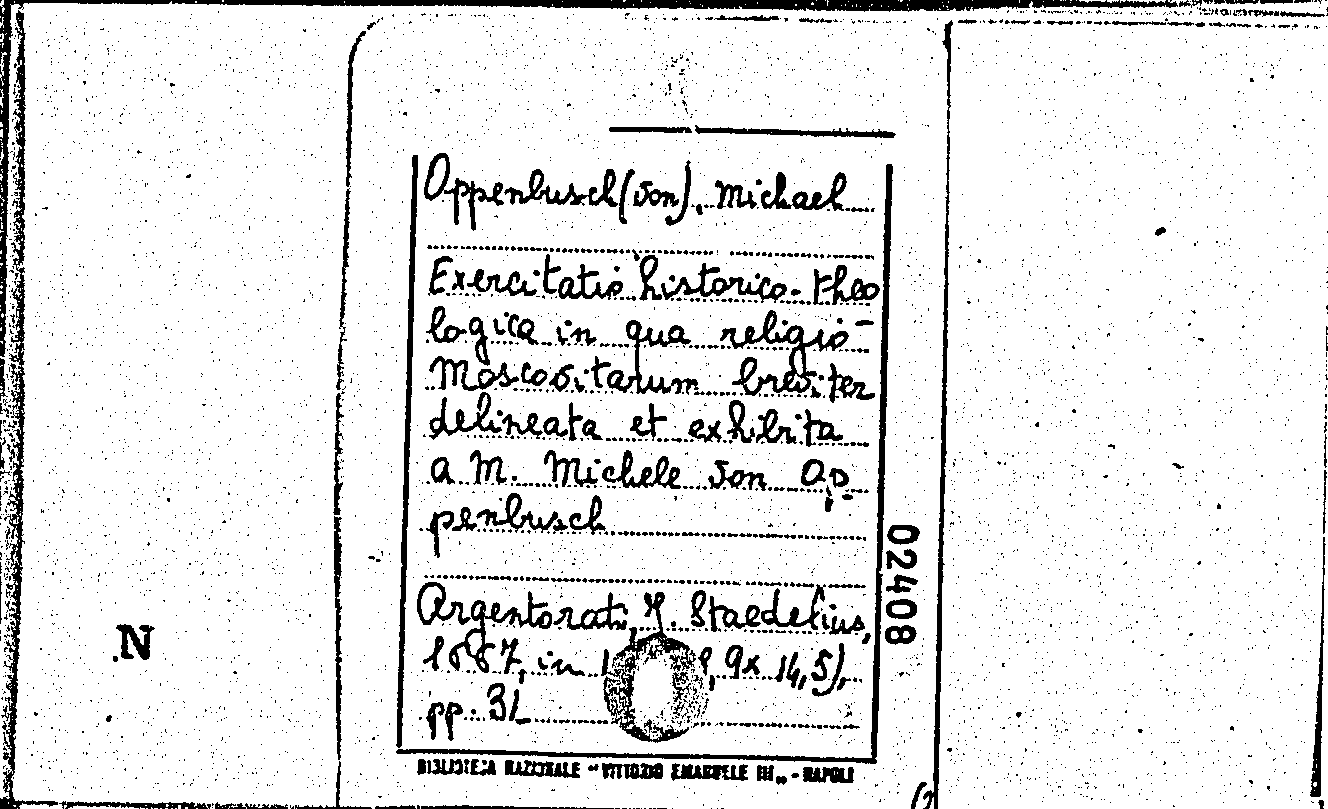 Oppenbusch (von), Michael
Exercitatio historico-theo
logica in qua religio-
Moscovitarum breviter
delineata et exhibita
a M. Michele von Op-
penbusch
Argentorati, Staedelius,
1667, in 9x 14,5),
pp. 31
02408
N
BIBLIOTECA NAZIONALE "VITTORIO EMANUELE III" - NAPOLI